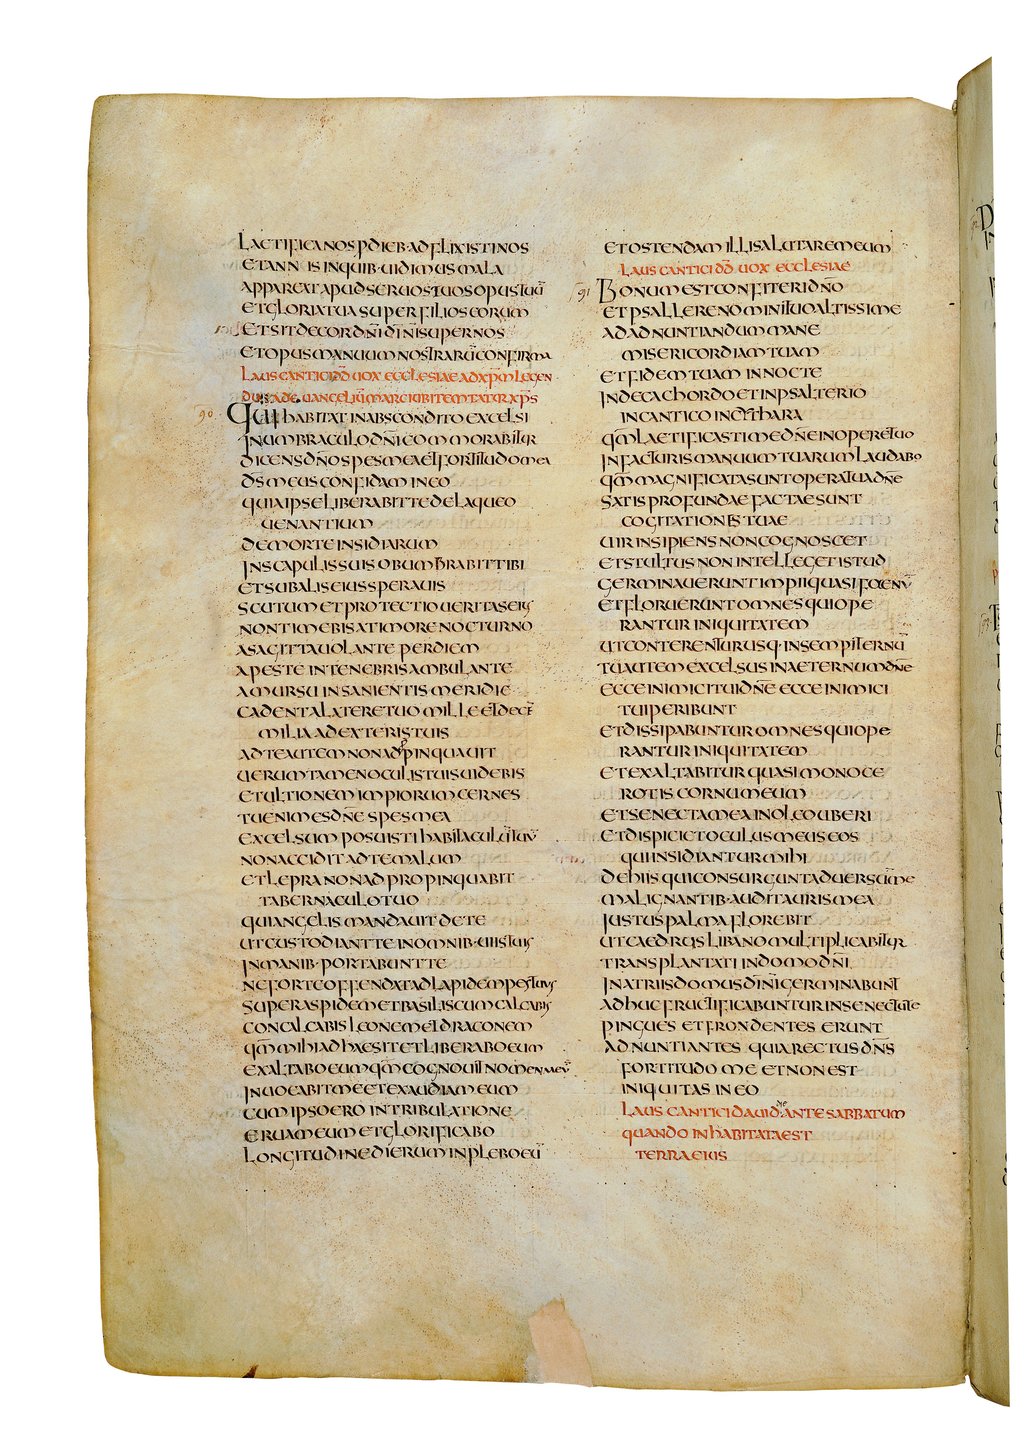 LAETIFICA NOS P DIEB· AD FLIXISTI NOS
ET ANNIS IN QUIB· UIDIMUS MALA
APPAREAT APUD SERUOS TUOS OPUS TUŪ
ET GLORIA TUA SUPER FILIOS EORUM
ET SIT DECOR DN̄I DĪ NR̄I SUPER NOS
ET OPUS MANUUM NOSTRARŪ CONFIRMA
LAUS CANTICI DD̄ UOX ECCLESIAE AD XPM̄ LEGEN
DUS AD EUANGELIŪ MARCI UBI TEMTATUR XPS̄
90 QUI HABITAT IN ABSCONDITO EXCELSI
IN UMBRACULO DN̄I COMMORABITUR
DICENS DN̄O SPES MEA ET FORTITUDO MEA
DS̄ MEUS CONFIDAM IN EO
QUIA IPSE LIBERABIT TE DE LAQUEO
UENANTIUM
DE MORTE INSIDIARUM
IN SCAPULIS SUIS OBUMBRABIT TIBI
ET SUB ALIS EIUS SPERAUIS
SCUTUM ET PROTECTIO UERITAS EIUS
NON TIMEBIS A TIMORE NOCTURNO
A SAGITTA UOLANTE PER DIEM
A PESTE IN TENEBRIS AMBULANTE
A MURSU INSANIENTIS MERIDIE
CADENT A LATERE TUO MILLE ET DECĒ
MILIA A DEXTERIS TUIS
AD TE AUTEM NON ADPINQUAUIT
UERUMTAMEN OCULIS TUIS UIDEBIS
ET ULTIONEM IMPIORUM CERNES
TU ENIM ES DN̄E SPES MEA
EXCELSUM POSUISTI HABITACULŪ TUŪ
NON ACCIDIT AD TE MALUM
ET LEPRA NON ADPROPINQUABIT
TABERNACULO TUO
QUI ANGELIS MANDAUIT DE TE
UT CUSTODIANT TE IN OMNIB· UIIS TUIS
IN MANIB· PORTABUNT TE
NE FORTE OFFENDAT AD LAPIDEM PES TUUS
SUPER ASPIDEM ET BASILISCUM CALCABIS
CONCALCABIS LEONEM ET DRACONEM
QM̄ MIHI ADHAESIT ET LIBERABO EUM
EXALTABO EUM QM̄ COGNOUIT NOMEN MEŪ
INUOCABIT ME ET EXAUDIAM EUM
CUM IPSO ERO IN TRIBULATIONE
ERUAM EUM ET GLORIFICABO
LONGITUDINE DIERUM INPLEBO EŪ
ET OSTENDAM ILLI SALUTARE MEUM
LAUS CANTICI DD̄ UOX ECCLESIAE
91 BONUM EST CONFITERI DN̄O
ET PSALLERE NOMINI TUO ALTISSIME
AD ADNUNTIANDUM MANE
MISERICORDIAM TUAM
ET FIDEM TUAM IN NOCTE
IN DECACHORDO ET IN PSALTERIO
IN CANTICO IN CYTHARA
QM̄ LAETIFICASTI ME DN̄E IN OPERE TUO
IN FACTURIS MANUUM TUARUM LAUDABO
QM̄ MAGNIFICATA SUNT OPERA TUA DN̄E
SATIS PROFUNDAE FACTAE SUNT
COGITATIONES TUAE
UIR INSIPIENS NON COGNOSCET
ET STULTUS NON INTELLEGET ISTUD
GERMINAUERUNT IMPII QUASI FOENŪ
ET FLORUERUNT OMNES QUI OPE
RANTUR INIQUITATEM
UT CONTERENTUR USQ· IN SEMPITERNŪ
TU AUTEM EXCELSUS IN AETERNUM DN̄E
ECCE INIMICI TUI DN̄E ECCE INIMICI
TUI PERIBUNT
ET DISSIPABUNTUR OMNES QUI OPE
RANTUR INIQUITATEM
ET EXALTABITUR QUASI MONOCE
ROTIS CORNU MEUM
ET SENECTA MEA IN OLEO UBERI
ET DISPICIET OCULUS MEUS EOS
QUI INSIDIANTUR MIHI
DE HIIS QUI CONSURGUNT ADUERSUM ME
MALIGNANTIB· AUDIT AURIS MEA
IUSTUS PALMA FLOREBIT
UT CAEDRUS LIBANO MULTIPLICABITUR
TRANSPLANTATI IN DOMO DN̄I
IN ATRIIS DOMUS DĪ NR̄I GERMINABUNT
ADHUC FRUCTIFICABUNTUR IN SENECTUTE
PINGUES ET FRONDENTES ERUNT
ADNUNTIANTES QUIA RECTUS DN̄S
FORTITUDO MEA ET NON EST
INIQUITAS IN EO
LAUS CANTICI DAUID DIE ANTE SABBATUM
QUANDO INHABITATA EST
TERRA EIUS